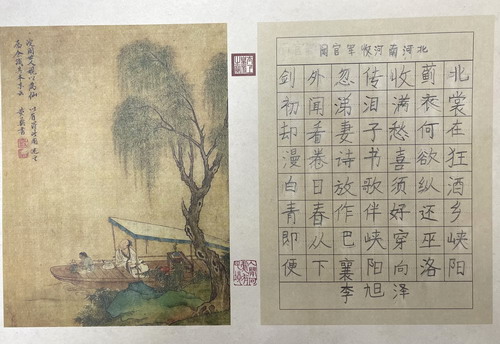 闻官军收河南河北
剑外忽传收蓟北
初闻涕泪满衣裳
却看妻子愁何在
漫卷诗书喜欲狂
白日放歌须纵酒
青春作伴好还乡
即从巴峡穿巫峡
便下襄阳向洛阳
李旭泽